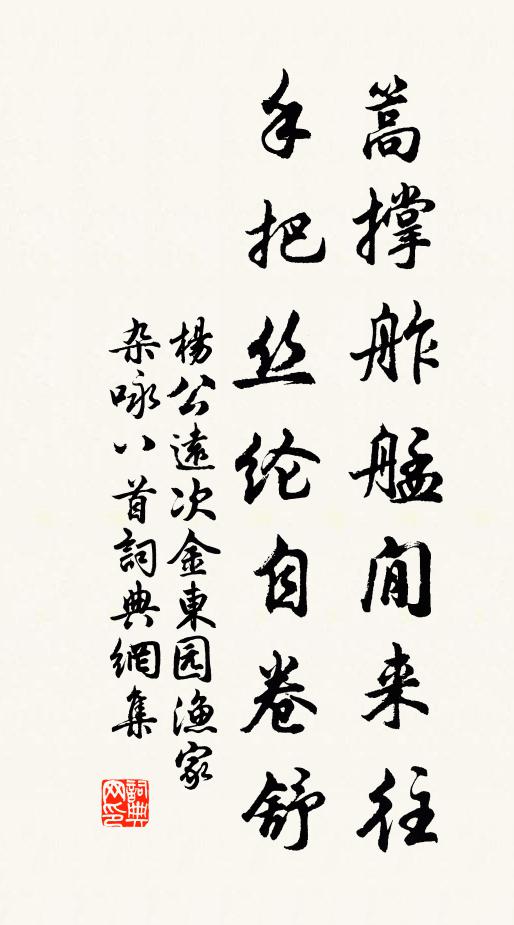 蒿撑舴艋閒来往
手把丝纶自卷舒
楊公遠次金東园漁家
杂咏八首詞典網集
詞典网印